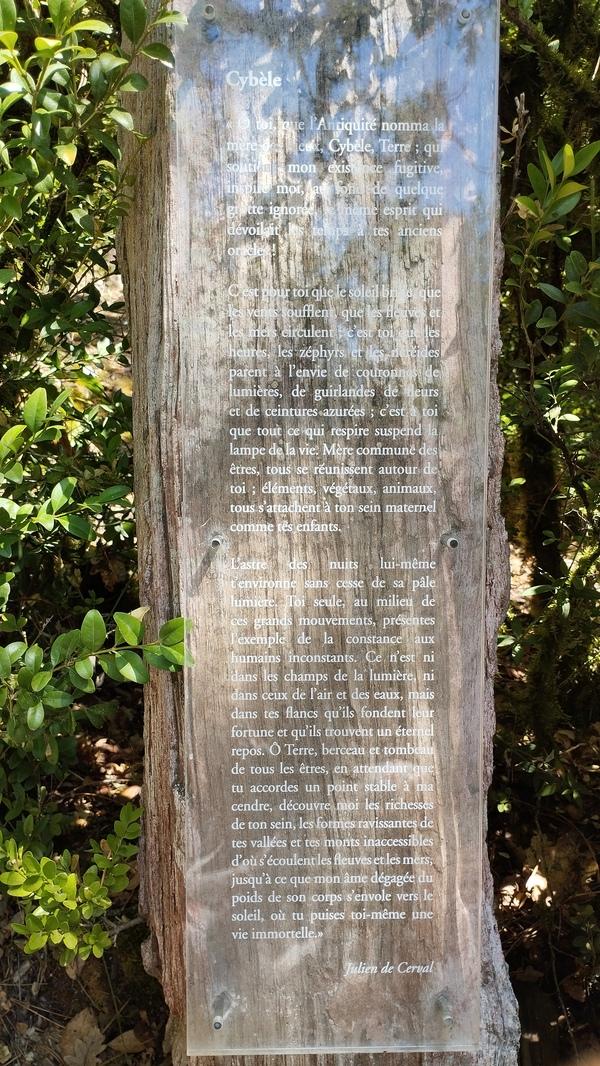 Cybèle
« Ô toi, que l'Antiquité nomma la
mère des Dieux, Cybèle, Terre ; qui
soutiens mon existence fugitive,
inspire moi, au fond de quelque
grotte ignorée, le même esprit qui
dévoilait les temps à tes anciens
oracles !
C'est pour toi que le soleil brille, que
les vents soufflent, que les fleuves et
les mers circulent ; c'est toi que les
heures, les zéphyrs et les néréides
parent à l'envie de couronnes de
lumières, de guirlandes de fleurs
et de ceintures azurées ; c'est à toi
que tout ce qui respire suspend la
lampe de la vie. Mère commune des
êtres, tous se réunissent autour de
toi ; éléments, végétaux, animaux,
tous s'attachent à ton sein maternel
comme tes enfants.
L'astre des nuits lui-même
t'environne sans cesse de sa pâle
lumière. Toi seule, au milieu de
ces grands mouvements, présentes
l'exemple de la constance aux
humains inconstants. Ce n'est ni
dans les champs de la lumière, ni
dans ceux de l'air et des eaux, mais
dans tes flancs qu'ils fondent leur
fortune et qu'ils trouvent un éternel
repos. Ô Terre, berceau et tombeau
de tous les êtres, en attendant que
tu accordes un point stable à ma
cendre, découvre moi les richesses
de ton sein, les formes ravissantes de
tes vallées et tes monts inaccessibles
d'où s'écoulent les fleuves et les mers;
jusqu'à ce que mon âme dégagée du
poids de son corps s'envole vers le
soleil, où tu puises toi-même une
vie immortelle.»
Julien de Cerval